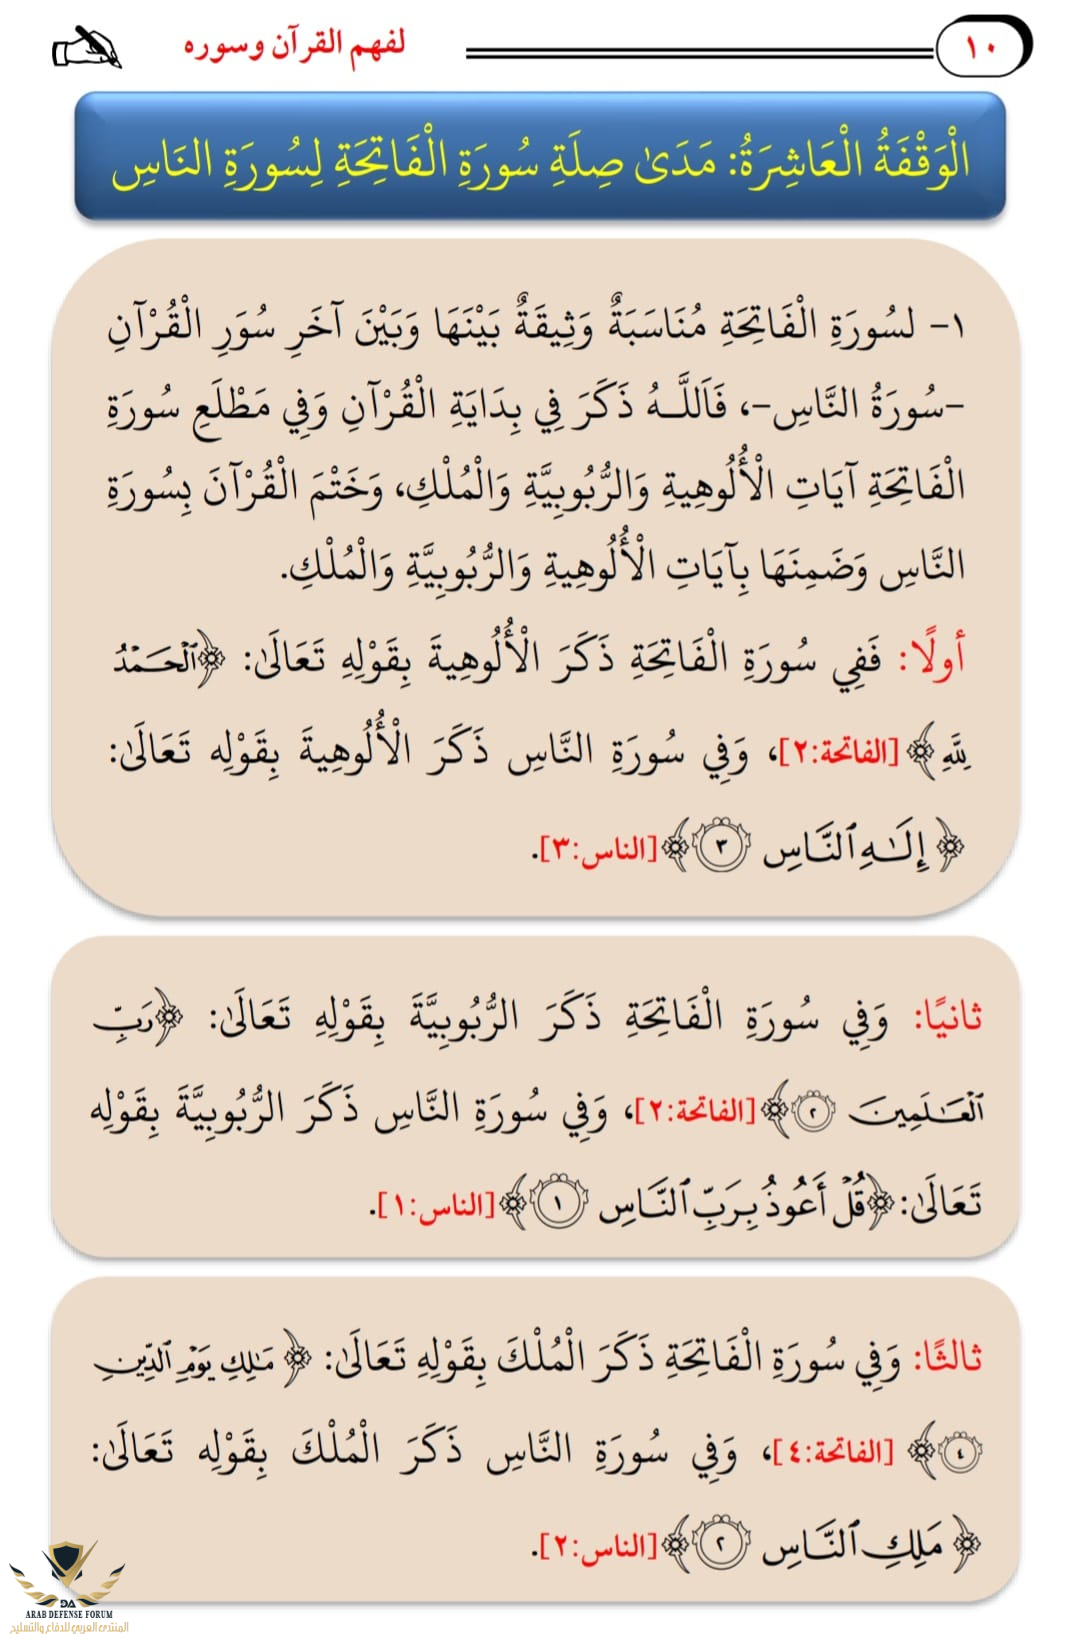 ١٠
لفهم القرآن وسوره
الْوَقْفَةُ الْعَاشِرَةُ: مَدَىٰ صِلَةِ سُورَةِ الْفَاتِحَةِ لِسُورَةِ النَاسِ
١- لسُورَةِ الْفَاتِحَةِ مُنَاسَبَةٌ وَثِيقَةٌ بَيْنَهَا وَبَيْنَ آخَرِ سُوَرِ الْقُرْآنِ
-سُورَةُ النَّاسِ-، فَاَللَّـهُ ذَكَرَ فِي بِدَايَةِ الْقُرْآنِ وَفِي مَطْلَعِ سُورَةِ
الْفَاتِحَةِ آيَاتِ الْأُلُوهِيةِ وَالرُّبُوبِيَّةِ وَالْمُلْكِ، وَخَتْمَ الْقُرْآنَ بِسُورَةِ
النَّاسِ وَضَمِنَهَا بِآيَاتِ الْأُلُوهِيةِ وَالرُّبُوبِيَّةِ وَالْمُلْكِ.
أولًا: فَفِي سُورَةِ الْفَاتِحَةِ ذَكَرَ الْأُلُوهِيةَ بِقَوْلِهِ تَعَالَىٰ: ﴿ٱلۡحَمۡدُ
لِلَّهِ﴾ [الفاتحة:٢]، وَفِي سُورَةِ النَّاسِ ذَكَرَ الْأُلُوهِيةَ بِقَوْلِه تَعَالَىٰ:
﴿إِلَٰهِ ٱلنَّاسِ ٣﴾ [الناس:٣].
ثانيًا: وَفِي سُورَةِ الْفَاتِحَةِ ذَكَرَ الرُّبُوبِيَّةَ بِقَوْلِهِ تَعَالَىٰ: ﴿رَبِّ
ٱلۡعَٰلَمِينَ ٢﴾ [الفاتحة:٢]، وَفِي سُورَةِ النَّاسِ ذَكَرَ الرُّبُوبِيَّةَ بِقَوْلِه
تَعَالَىٰ: ﴿قُلۡ أَعُوذُ بِرَبِّ ٱلنَّاسِ ١﴾ [الناس:١].
ثالثًا: وَفِي سُورَةِ الْفَاتِحَةِ ذَكَرَ الْمُلْكَ بِقَوْلِهِ تَعَالَىٰ: ﴿مَٰلِكِ يَوۡمِ ٱلدِّينِ
٤﴾ [الفاتحة:٤]، وَفِي سُورَةِ النَّاسِ ذَكَرَ الْمُلْكَ بِقَوْلِه تَعَالَىٰ:
﴿مَلِكِ ٱلنَّاسِ ٢﴾ [الناس:٢].
DA
ARAB DEFENSE FORUM
المنتدى العربي للدفاع والتسليح